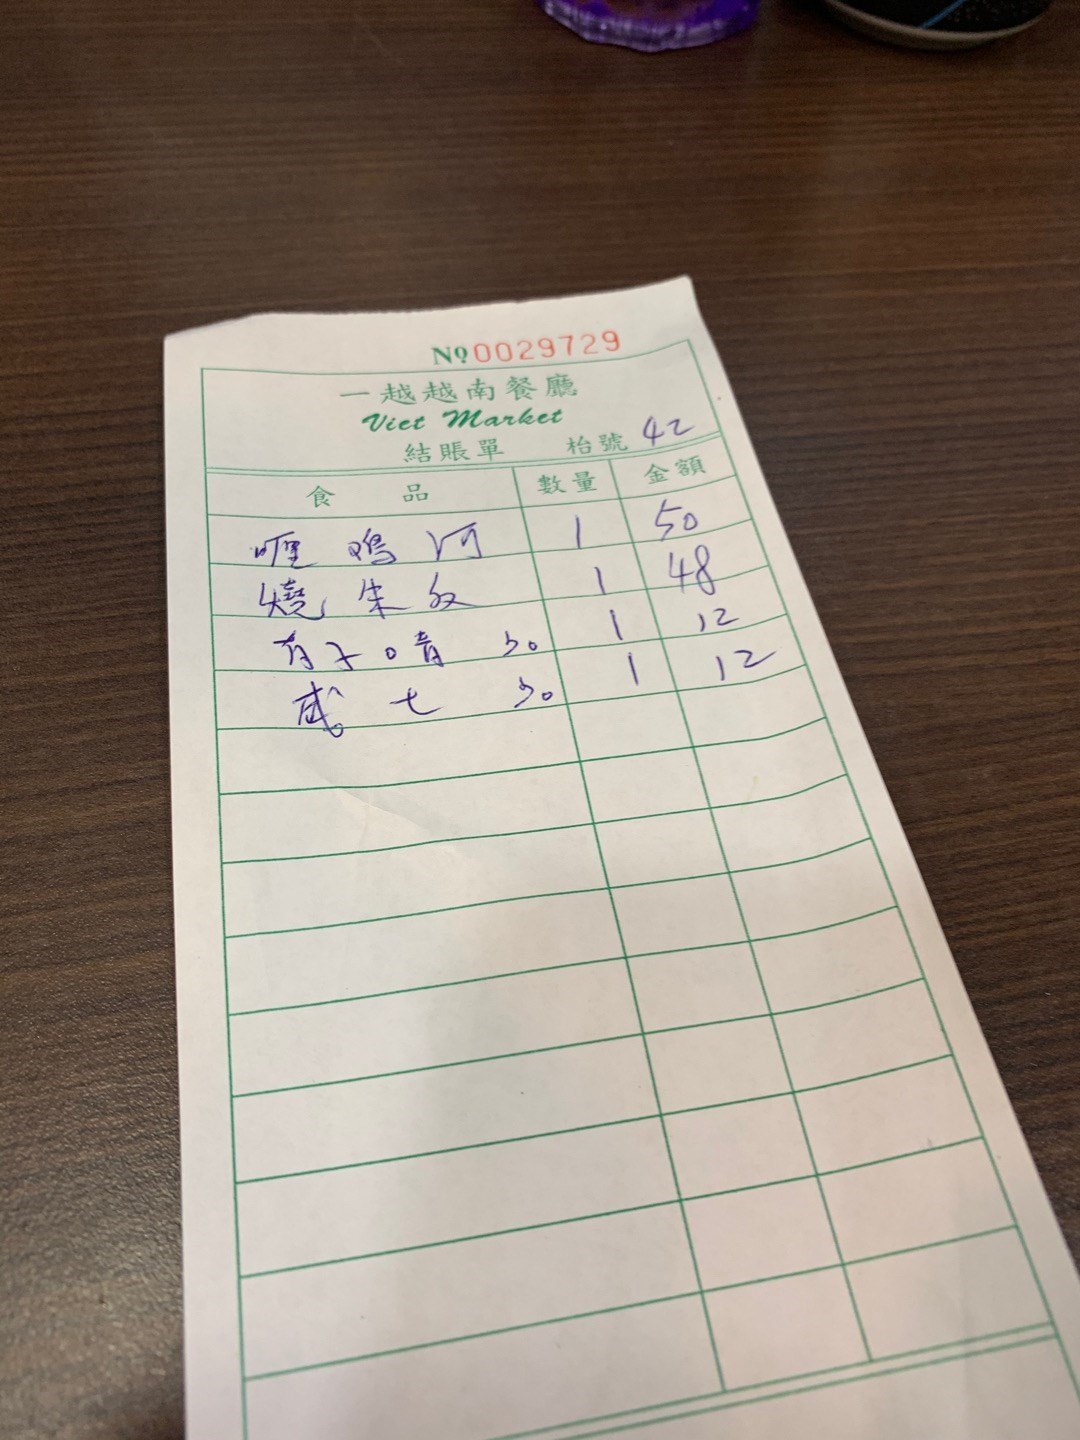 №0029729
一越越南餐廳
Viet Market
結賬單 枱號 42
食品 數量 金額
喱鳮河 1 50
燒朱 1 48
1 12
咸七 1 12